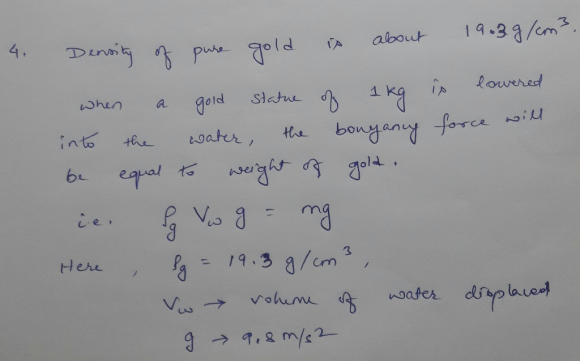 4. Density of pure gold is about 19.3g/cm³.
when a gold statue of 1kg is lowered
into the water, the bouyancy force will
be equal to weight of gold.
i.e. ρg Vw g = mg
Here, ρg = 19.3 g/cm³,
Vw → volume of water displaced
g → 9.8 m/s2